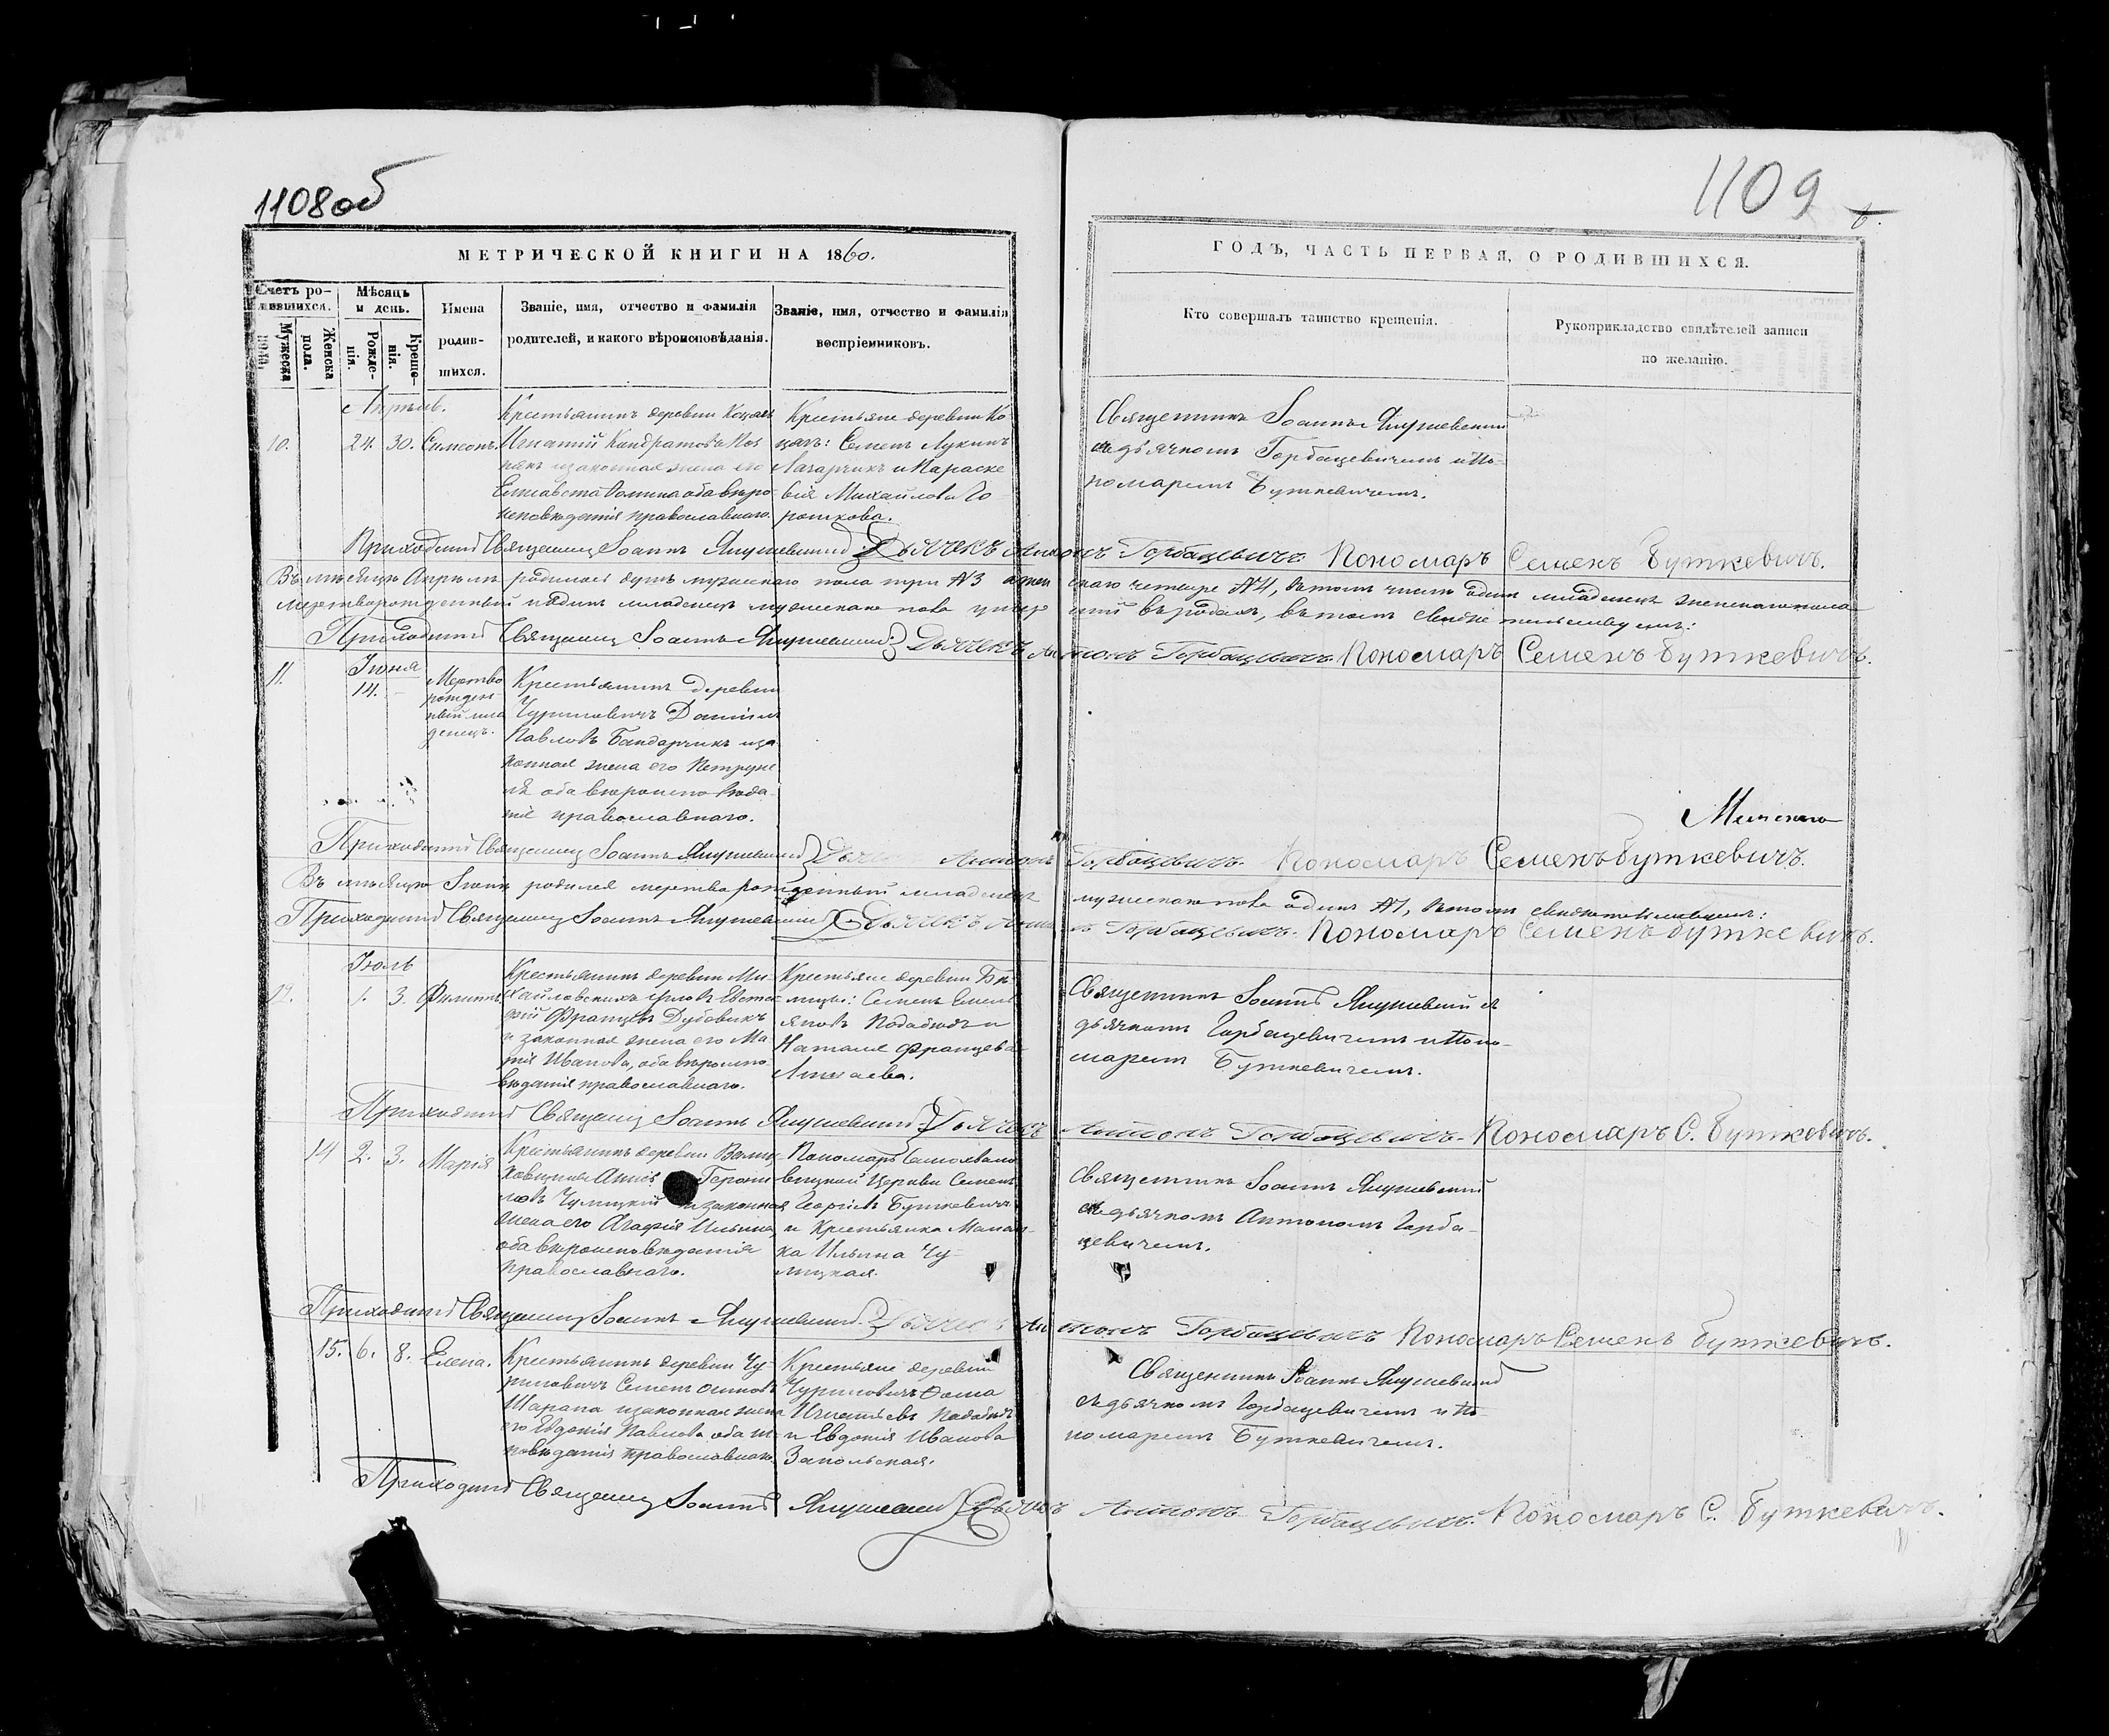 1108 об
1109
6.
МЕТРИЧЕСКОЙ КНИГИ НА 1860.
ГОДЪ, ЧАСТЬ ПЕРВАЯ, О РОДИВШИХСЯ.
Счетъ ро-
дившихся.
Мужеска
пола.
Женска
пола.
Мѣсяцъ
и день.
Рожде-
нія.
Креще-
нія.
Имена
родив-
шихся.
Званіе, имя, отчество и фамилія
родителей, и какого вѣроисповѣданія.
Званіе, имя, отчество и фамилія
воспріемниковъ.
Кто совершалъ таинство крещенія.
Рукоприкладство свидѣтелей записи
по желанію.
Апрѣль.
10.
24. 30. Симеонъ.
Крестьянинъ деревни
Игнатій Кондратовъ
и законная жена его
Елисавета Фомина оба вѣро
исповѣданія православнаго.
Крестьяне деревни Ко
цакъ: Семенъ Лукинъ
Лазарчикъ и Параске
вія Михайлова Го
рошкова.
Священникъ Іоаннъ Янушевскій
съ дьячкомъ Горбацевичемъ и По-
номаремъ Буткевичемъ.
Приходскій Священникъ Іоаннъ Янушевскій Дьячекъ Антонъ Горбацевичъ Пономарь Семенъ Буткевичъ.
Въ мѣсяцѣ Апрѣлѣ родилось душъ мужескаго пола три №3 а женскаго четыре №4, въ томъ числѣ одинъ младенецъ женскаго пола
мертворожденный и одинъ младенецъ мужескаго пола умер шій въ родахъ, въ томъ свидѣтельствуемъ:
Приходскій Священникъ Іоаннъ Янушевскій Дьячекъ Антонъ Горбацевичъ Пономарь Семенъ Буткевичъ.
11.
Іюня
14. –
Мертво
рожден-
ный мла
денецъ.
Крестьянинъ деревни
Чуриловичъ Даніилъ
Павловъ Бандарчикъ и за
конная жена его Петруне
ля оба вѣроисповѣда
нія православнаго.
Минскаго
Приходскій Священникъ Іоаннъ Янушевскій Дьячекъ Антонъ Горбацевичъ Пономарь Семенъ Буткевичъ.
Въ мѣсяцѣ Іюнѣ родился мертворожденный младенецъ мужескаго пола одинъ №1, въ томъ свидѣтельствуемъ:
Приходскій Священникъ Іоаннъ Янушевскій Дьячекъ Антонъ Горбацевичъ. Пономарь Семенъ Буткевичъ.
Іюль
12.
1. 3. Филиппъ.
Крестьянинъ деревни Ми-
хайловскихъ
Францевъ Дубовикъ
и законная жена его Ма
рія Иванова, оба вѣроиспо
вѣданія православнаго.
Крестьяне деревни
Семенъ
и
Наталія Францева
Священникъ Іоаннъ Янушевскій съ
дьячкомъ Горбацевичемъ и Поно-
маремъ Буткевичемъ.
Приходскій Священникъ Іоаннъ Янушевскій Дьячекъ Антонъ Горбацевичъ. Пономарь С. Буткевичъ.
14 2. 3. Марія
Крестьянинъ деревни
Герони
мовъ Чулицкій и законная
жена его Агафія Ильина,
оба вѣроисповѣданія
православнаго.
Пономарь
Церкви Семенъ
Георгіевъ Буткевичъ
и Крестьянка
Ильина Чу-
лицкая.
Священникъ Іоаннъ Янушевскій
съ дьячкомъ Антономъ Горба-
цевичемъ.
Приходскій Священникъ Іоаннъ Янушевскій. Дьячекъ Антонъ Горбацевичъ Пономарь Семенъ Буткевичъ.
15. 6. 8. Елена.
Крестьянинъ деревни Чу-
риловичъ Семенъ Осиповъ
Шарапа и законная жена
его Евдокія Павлова оба ис
повѣданія православнаго.
Крестьяне деревни
Чуриловичъ Фома
Игнатьевъ
и Евдокія Иванова
Запольская.
Священникъ Іоаннъ Янушевскій
съ дьячкомъ Горбацевичемъ и По-
номаремъ Буткевичемъ.
Приходскій Священникъ Іоаннъ Янушевскій Дьячекъ Антонъ Горбацевичъ. Пономарь С. Буткевичъ.